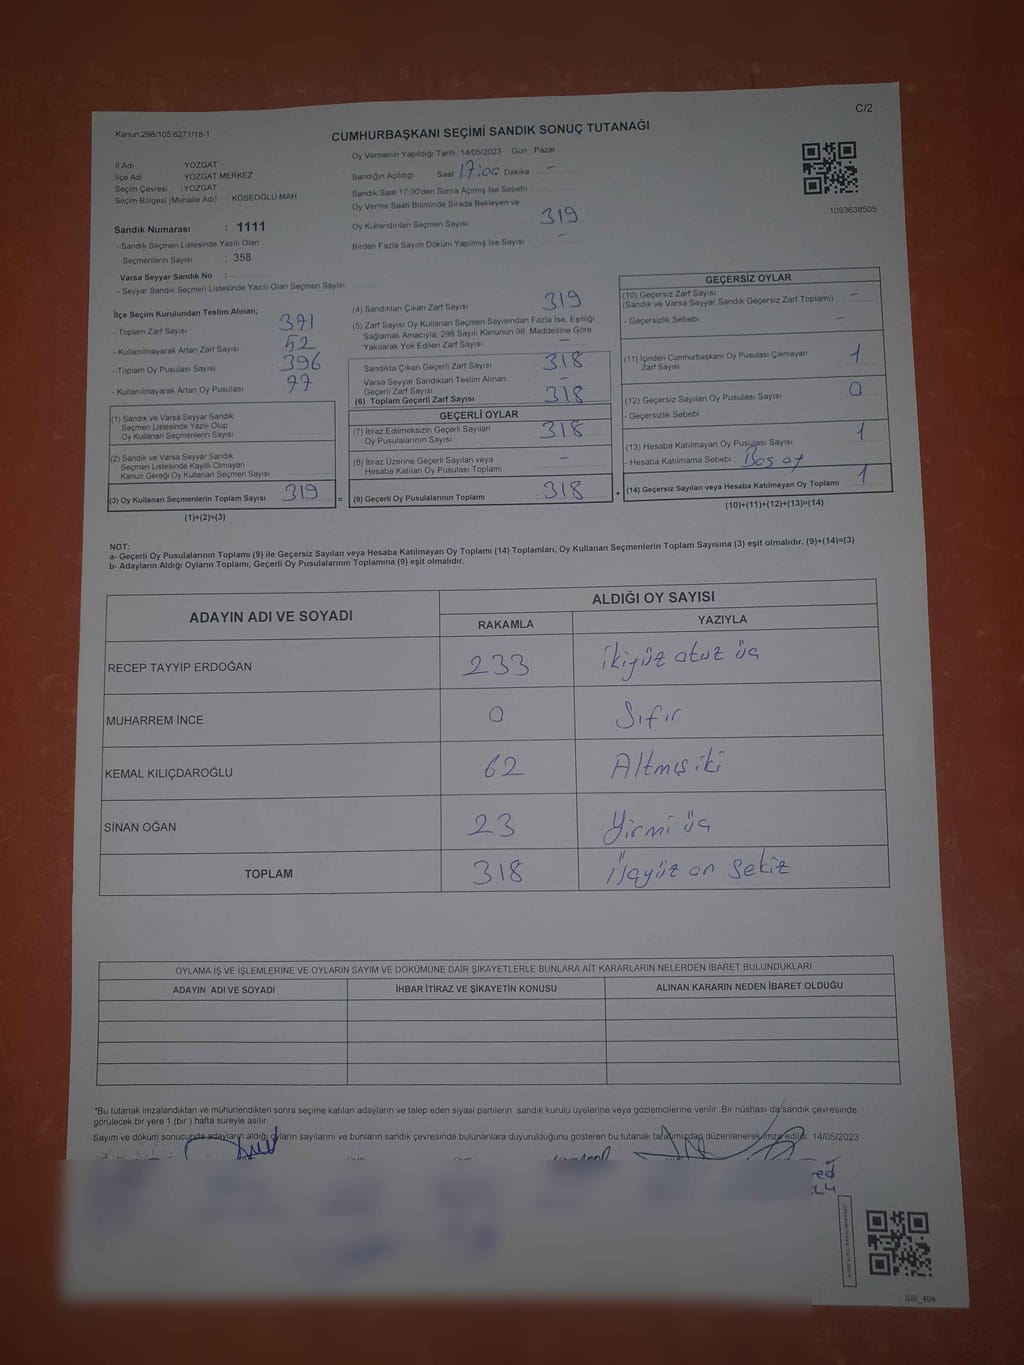 C/2
Kanun;298/105;6271/18-1
CUMHURBAŞKANI SEÇİMİ SANDIK SONUÇ TUTANAĞI
İl Adı YOZGAT
İlçe Adı YOZGAT MERKEZ
Seçim Çevresi : YOZGAT
Seçim Bölgesi (Mahalle Adı) : KÖSEOĞLU MAH
Sandık Numarası : 1111
- Sandık Seçmen Listesinde Yazılı Olan
Seçmenlerin Sayısı : 358
Varsa Seyyar Sandık No :
- Seyyar Sandık Seçmen Listesinde Yazılı Olan Seçmen Sayısı
Oy Vermenin Yapıldığı Tarih :14/05/2023 Gün : Pazar
Sandığın Açıldığı Saat 17:00 Dakika -
Sandık Saat 17:00'den Sonra Açımış İse Sebebi
Oy Verme Saati Bitiminde Sırada Bekleyen ve
Oy Kullandırılan Seçmen Sayısı 319
Birden Fazla Sayım Döküm Yapılmış İse Sayısı -
1093638505
İlçe Seçim Kurulundan Teslim Alınan;
- Toplam Zarf Sayısı 371
- Kullanılmayarak Artan Zarf Sayısı 52
- Toplam Oy Pusulası Sayısı 396
- Kullanılmayarak Artan Oy Pusulası 77
(1) Sandık ve Varsa Seyyar Sandık
Seçmen Listesinde Yazılı Olup
Oy Kullanan Seçmenlerin Sayısı
(2) Sandık ve Varsa Seyyar Sandık
Seçmen Listesinde Kayıtlı Olmayan
Kanun Gereği Oy Kullanan Seçmen Sayısı
(3) Oy Kullanan Seçmenlerin Toplam Sayısı 319 =
(1)+(2)=(3)
(4) Sandıktan Çıkan Zarf Sayısı 319
(5) Zarf Sayısı Oy Kullanan Seçmen Sayısından Fazla İse, Eşitliği
Sağlamak Amacıyla, 298 Sayılı Kanunun 98. Maddesine Göre
Yakılarak Yok Edilen Zarf Sayısı -
Sandıkta Çıkan Geçerli Zarf Sayısı 318
Varsa Seyyar Sandıktan Teslim Alınan
Geçerli Zarf Sayısı -
(6) Toplam Geçerli Zarf Sayısı 318
GEÇERLİ OYLAR
(7) İtiraz Edilmeksizin Geçerli Sayılan
Oy Pusulalarının Sayısı : 318
(8) İtiraz Üzerine Geçerli Sayılan veya
Hesaba Katılan Oy Pusulası Toplamı -
(9) Geçerli Oy Pusulalarının Toplamı : 318 +
GEÇERSİZ OYLAR
(10) Geçersiz Zarf Sayısı
(Sandık ve Varsa Seyyar Sandık Geçersiz Zarf Toplamı) -
- Geçersizlik Sebebi -
(11) İçinden Cumhurbaşkanı Oy Pusulası Çıkmayan
Zarf Sayısı 1
(12) Geçersiz Sayılan Oy Pusulası Sayısı 0
- Geçersizlik Sebebi
(13) Hesaba Katılmayan Oy Pusulası Sayısı 1
- Hesaba Katılmama Sebebi : Boş oy
(14) Geçersiz Sayılan veya Hesaba Katılmayan Oy Toplamı 1
(10)+(11)+(12)+(13)=(14)
NOT:
a- Geçerli Oy Pusulalarının Toplamı (9) ile Geçersiz Sayılan veya Hesaba Katılmayan Oy Toplamı (14) Toplamları, Oy Kullanan Seçmenlerin Toplam Sayısına (3) eşit olmalıdır. (9)+(14)=(3)
b- Adayların Aldığı Oyların Toplamı, Geçerli Oy Pusulalarının Toplamına (9) eşit olmalıdır.
ADAYIN ADI VE SOYADI ALDIĞI OY SAYISI
RAKAMLA YAZIYLA
RECEP TAYYİP ERDOĞAN 233 ikiyüz otuz üç
MUHARREM İNCE 0 Sıfır
KEMAL KILIÇDAROĞLU 62 Altmış iki
SİNAN OĞAN 23 Yirmi üç
TOPLAM 318 üçyüz on sekiz
OYLAMA İŞ VE İŞLEMLERİNE VE OYLARIN SAYIM VE DÖKÜMÜNE DAİR ŞİKAYETLERLE BUNLARA AİT KARARLARIN NELERDEN İBARET BULUNDUKLARI
ADAYIN ADI VE SOYADI İHBAR İTİRAZ VE ŞİKAYETİN KONUSU ALINAN KARARIN NEDEN İBARET OLDUĞU
*Bu tutanak imzalandıktan ve mühürlendikten sonra seçime katılan adayların ve talep eden siyasi partilerin sandık kurulu üyelerine veya gözlemcilerine verilir. Bir nüshası da sandık çevresinde
görülecek bir yere 1 (bir) hafta süreyle asılır.
Sayım ve döküm sonucunda adayların aldığı oyların sayılarını ve bunların sandık çevresinde bulunanlara duyurulduğunu gösteren bu tutanak tarafımızdan düzenlenerek imza edildi. 14/05/2023
SSI_404